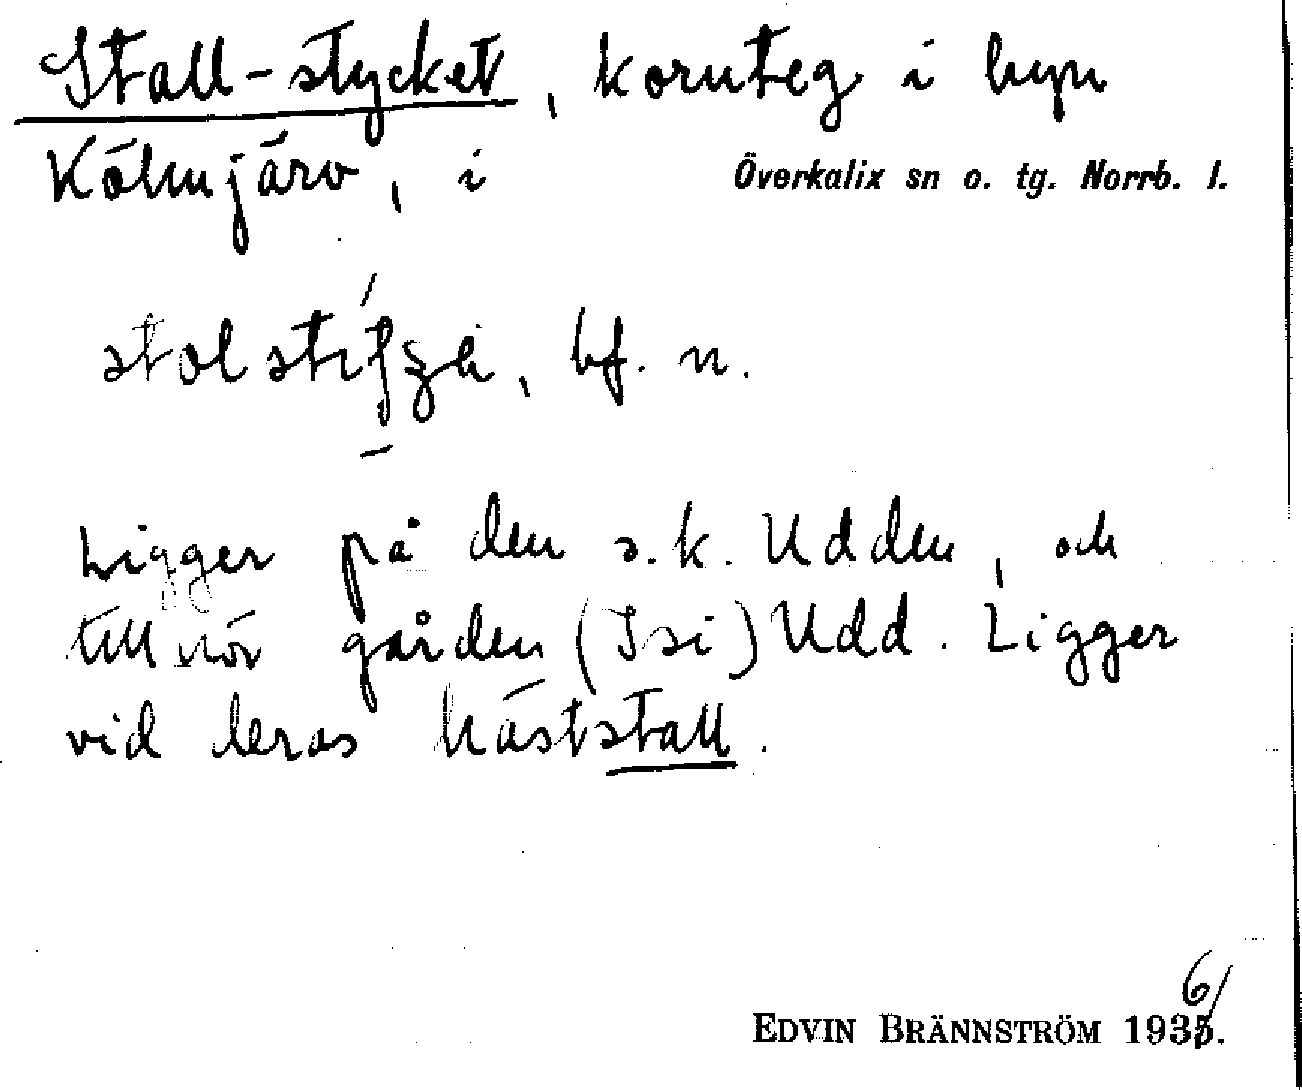 Stall-stycket, kornteg i byn
Kölmjärv, i Överkalix sn o. tg. Norrb. l.
bf. n.
Ligger på den s.k. Udden, och
tillhör gården (Isi) Udd. Ligger
vid deras häststall.
6/
EDVIN BRÄNNSTRÖM 1935.